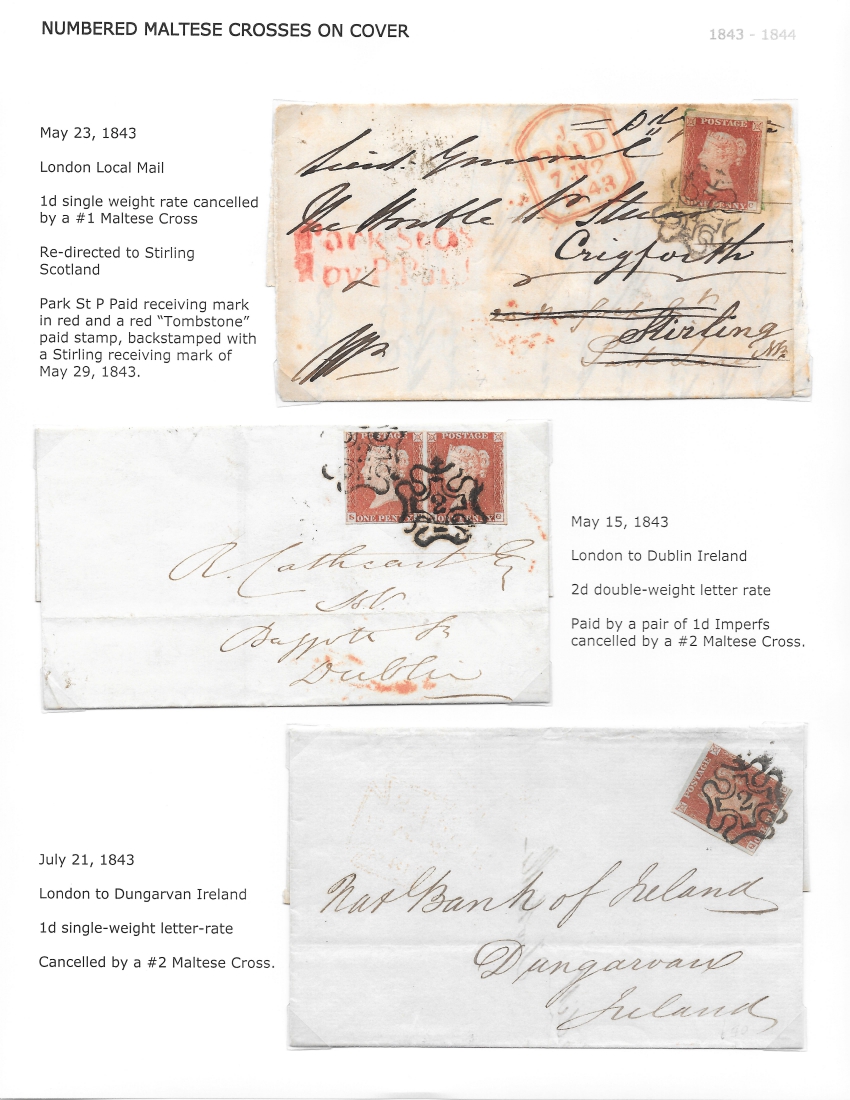 NUMBERED MALTESE CROSSES ON COVER
1843 - 1844
May 23, 1843
London Local Mail
1d single weight rate cancelled
by a #1 Maltese Cross
Re-directed to Stirling
Scotland
Park St P Paid receiving mark
in red and a red “Tombstone”
paid stamp, backstamped with
a Stirling receiving mark of
May 29, 1843.
PAID
1843
POSTAGE
ONE PENNY
Lieut. General
The Honble
Park St
Py P Paid
Stirling
POSTAGE POSTAGE
ONE PENNY
2
R. Cathcart Esq
Baggot St
Dublin
May 15, 1843
London to Dublin Ireland
2d double-weight letter rate
Paid by a pair of 1d Imperfs
cancelled by a #2 Maltese Cross.
POSTAGE
2
Nat Bank of Ireland
Dungarvan
Ireland
July 21, 1843
London to Dungarvan Ireland
1d single-weight letter-rate
Cancelled by a #2 Maltese Cross.